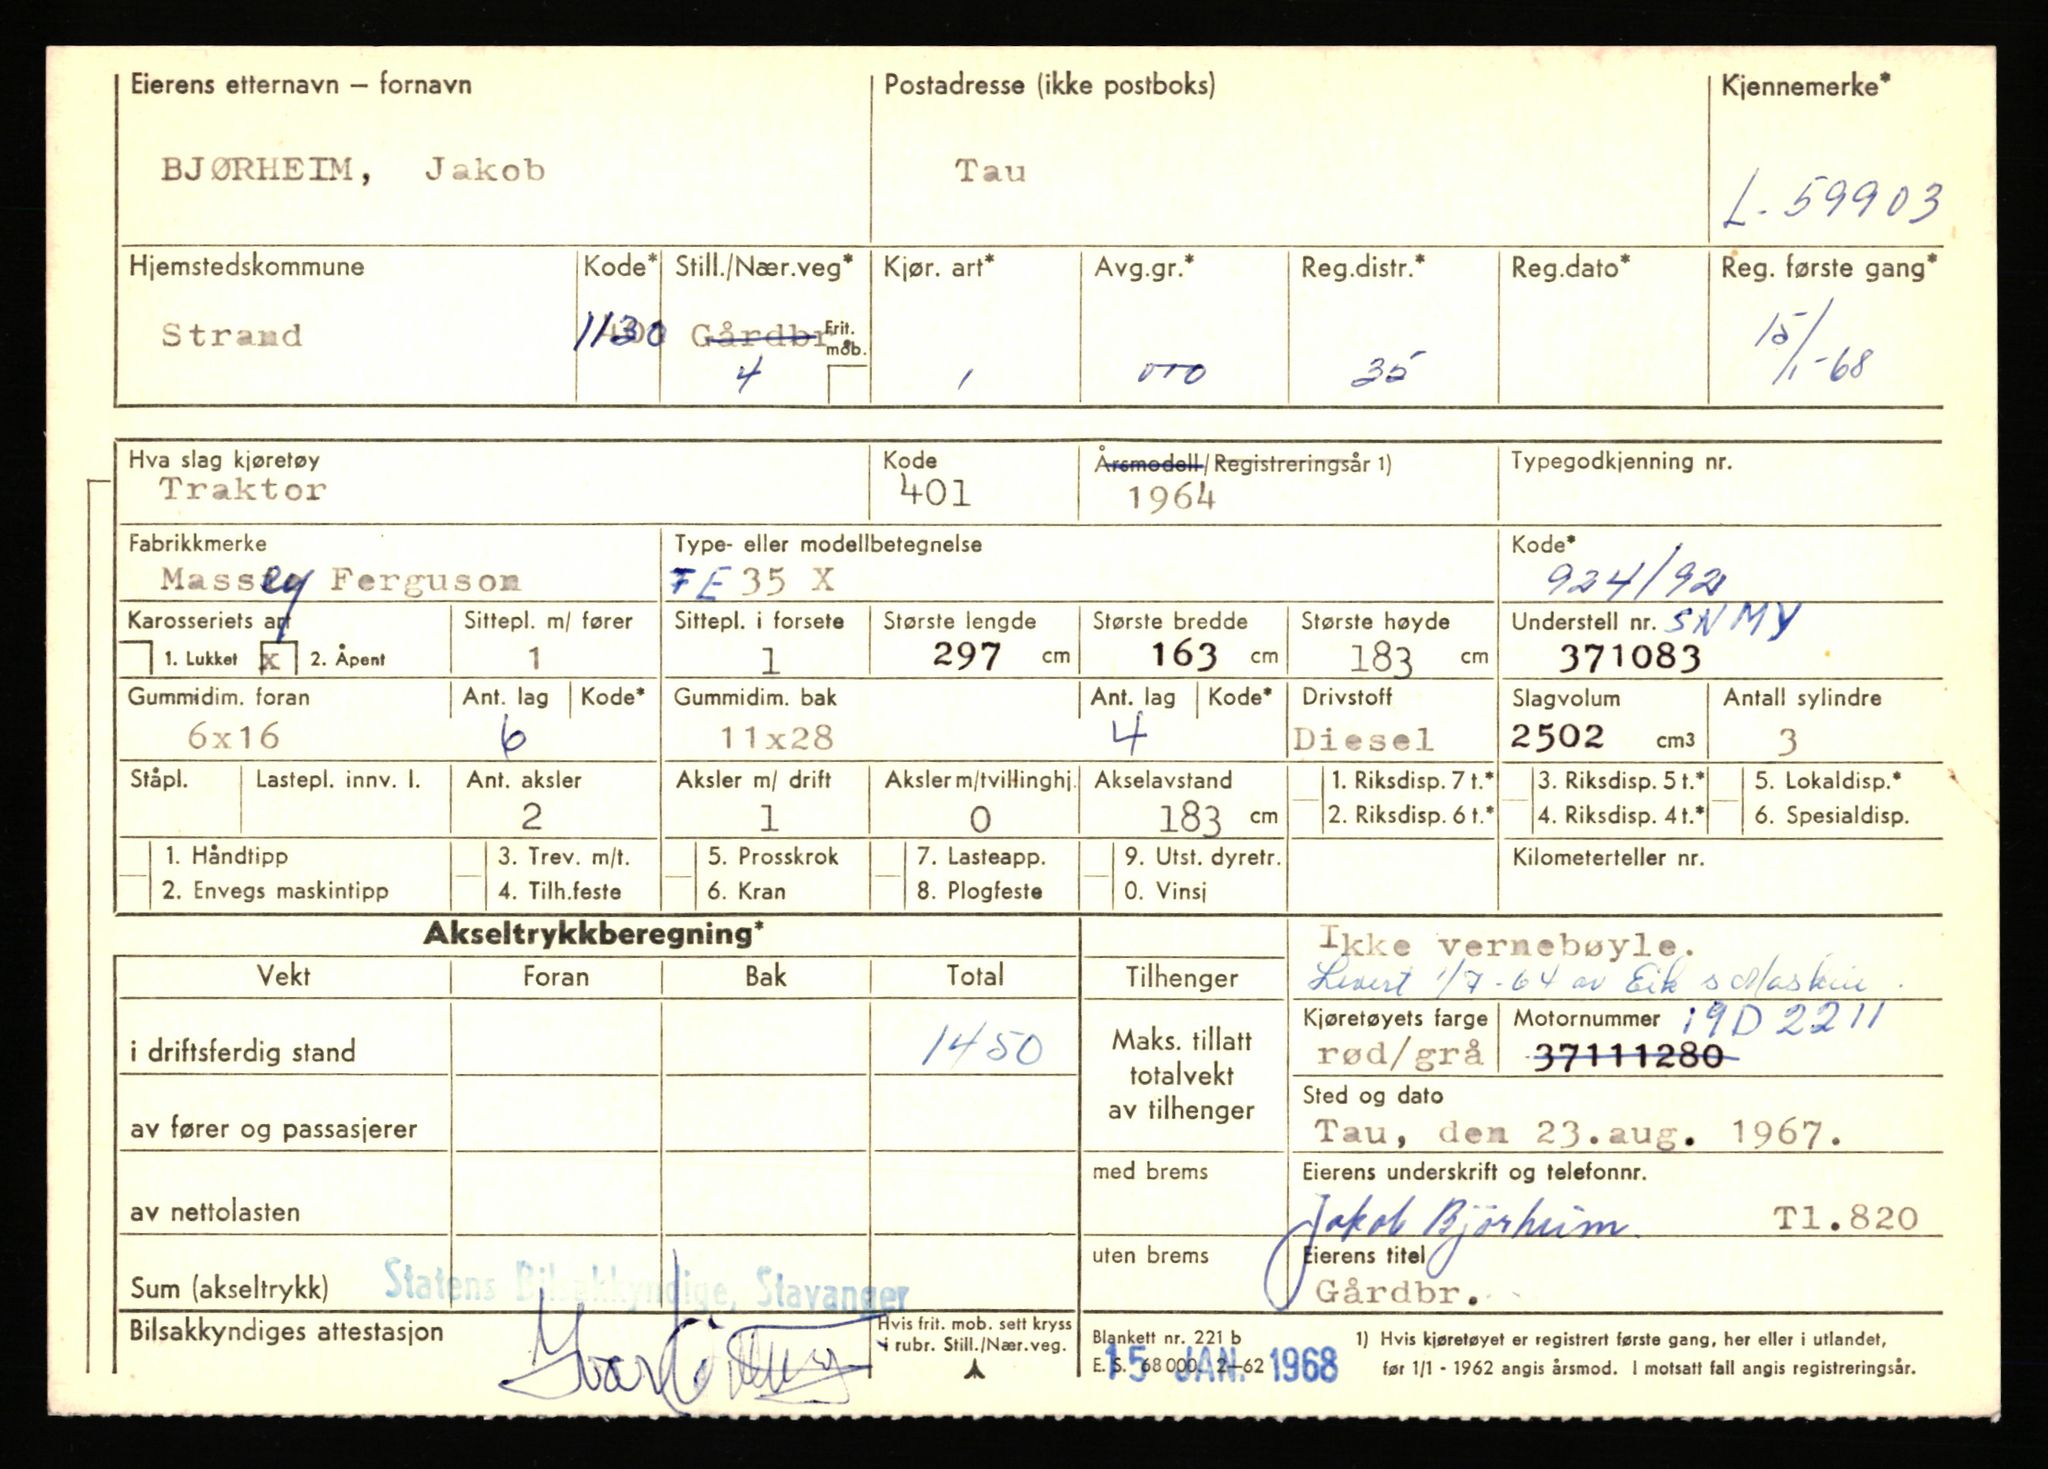 Eierens etternavn – fornavn Postadresse (ikke postboks) Kjennemerke*
BJØRHEIM, Jakob Tau L-59903
Hjemstedskommune Kode* Still./Nær.veg* Kjør. art* Avg.gr.* Reg.distr.* Reg.dato* Reg. første gang*
Strand 1130 Gårdbr. Frit. mob. 15/1-68
4 1 35
Hva slag kjøretøy Kode Årsmodell/Registreringsår 1) Typegodkjenning nr.
Traktor 401 1964
Fabrikkmerke Type- eller modellbetegnelse Kode*
Massey Ferguson FE 35 X 924/92
Karosseriets art Sittepl. m/ fører Sittepl. i forsete Største lengde Største bredde Største høyde Understell nr. SNMY
1. Lukket x 2. Åpent 1 1 297 cm 163 cm 183 cm 371083
Gummidim. foran Ant. lag Kode* Gummidim. bak Ant. lag Kode* Drivstoff Slagvolum Antall sylindre
6x16 6 11x28 4 Diesel 2502 cm3 3
Ståpl. Lastepl. innv. l. Ant. aksler Aksler m/ drift Aksler m/tvillinghj. Akselavstand 1. Riksdisp. 7 t.* 3. Riksdisp. 5 t.* 5. Lokaldisp.*
2 1 0 183 cm 2. Riksdisp. 6 t.* 4. Riksdisp. 4 t.* 6. Spesialdisp.
1. Håndtipp 3. Trev. m/t. 5. Prosskrok 7. Lasteapp. 9. Utst. dyretr. Kilometerteller nr.
2. Envegs maskintipp 4. Tilh.feste 6. Kran 8. Plogfeste 0. Vinsj
Akseltrykkberegning* Ikke vernebøyle.
Vekt Foran Bak Total Tilhenger Levert 1/7-64 av Eik s Maskin.
i driftsferdig stand 1450 Maks. tillatt totalvekt av tilhenger Kjøretøyets farge Motornummer 19D2211
rød/grå 37111280
Sted og dato
av fører og passasjerer Tau, den 23.aug. 1967.
med brems Eierens underskrift og telefonnr.
av nettolasten Jakob Bjørheim Tl.820
uten brems Eierens titel
Sum (akseltrykk) Statens Bilsakkyndige, Stavanger Gårdbr.
Bilsakkyndiges attestasjon Hvis frit. mob. sett kryss i rubr. Still./Nær.veg. Blankett nr. 221 b 1) Hvis kjøretøyet er registrert første gang, her eller i utlandet,
E. S. 68 000. 2–62 før 1/1 - 1962 angis årsmod. I motsatt fall angis registreringsår.
15 JAN. 1968